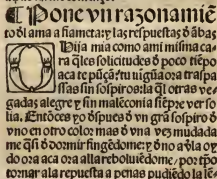 Pone vn razonamiẽ
to đl ama a fiameta: y las respuestas đ ãbas
Hija mia como ami misma ca
ra q̃les solicitudes đ poco tiẽpo
aca te pũçã: tu uiguã ora traspa
ssas sin sospiros: la q̃l otras ve-
gadas alegre y sin malẽconia siẽpre ver so
lia. Entõces yo đspues đ vn grã sospiro đ
vno en otro color mas đ vna vez mudada
me q̃si đ dormir fingẽdome: y đ no a
do ora aca ora alla reboluiẽdome/ por
tornar ala repuesta a penas pudiẽdo la lẽ